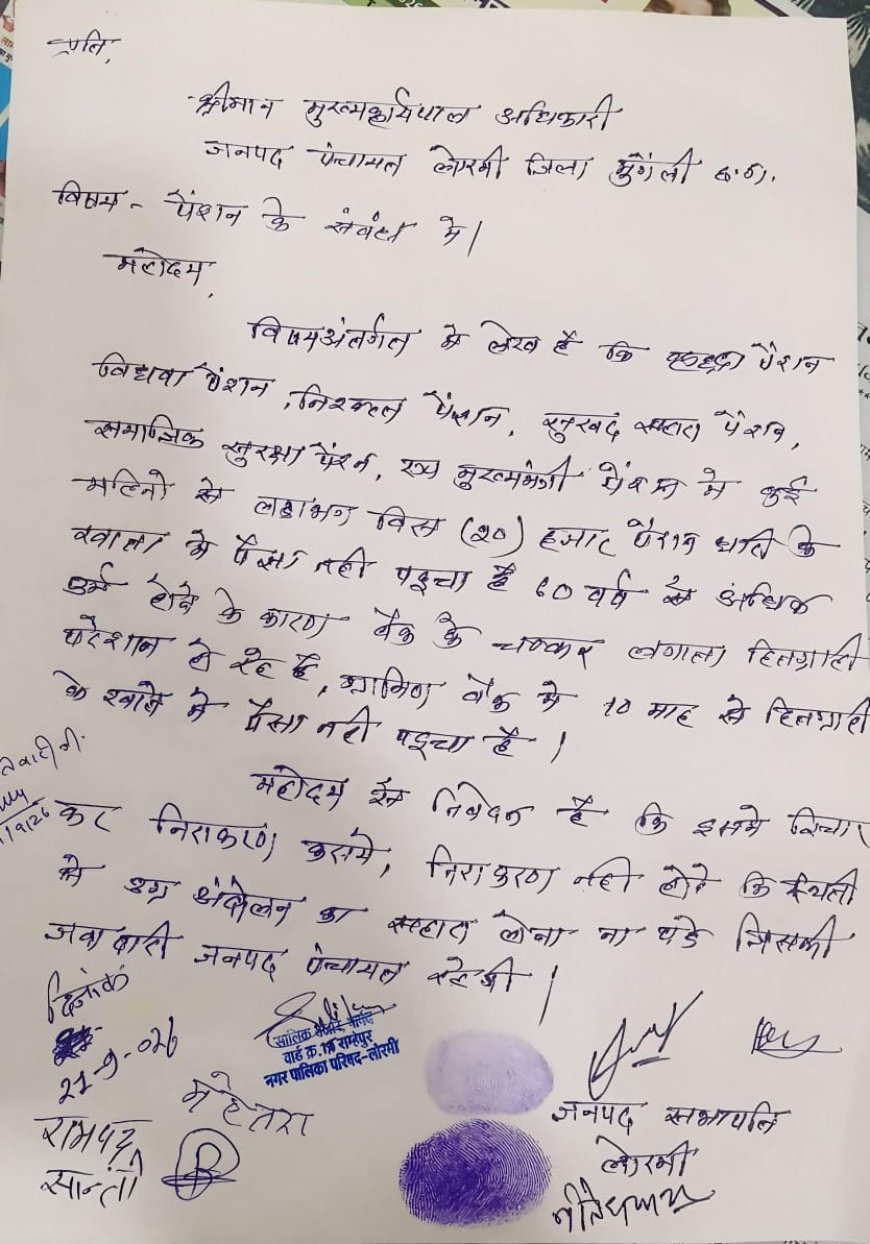 प्रति,
श्रीमान मुख्यकार्यपाल अधिकारी
जनपद पंचायत लोरमी जिला मुंगेली छ.ग.
विषय - पेंशन के संबंध मे।
महोदय,
विषयअंतर्गत मे लेख है कि पेंशन
विधवा पेंशन, पेंशन, सुखद सहारा पेंशन,
समाजिक सुरक्षा पेंशन, मुख्यमंत्री पेंशन मे कई
महिनो से लगभग विस (20) हजार पेंशन धारी के
खाता मे पैसा नही पहुचा है 60 वर्ष से अधिक
उम्र होने के कारण बैंक के चक्कर लगाता हितग्राही
परेशान हो रहे है, ग्रामिण बैंक मे 10 माह से हितग्राही
के खाते मे पैसा नही पहुचा है।
महोदय से निवेदन है कि इसमे विचार
कर निराकरण करामे, निराकरण नही होने कि स्थिती
मे उग्र अंदोलन का सहारा लेना ना पडे जिसकी
जवाबारी जनपद पंचायत रहेगी।
दिनांक
21-9-026
सालिक
वार्ड क्र. रामहेपुर
नगर पालिका परिषद-लोरमी
मेहेतरा
जनपद सभापति
लोरमी
रामपद
सान्ती